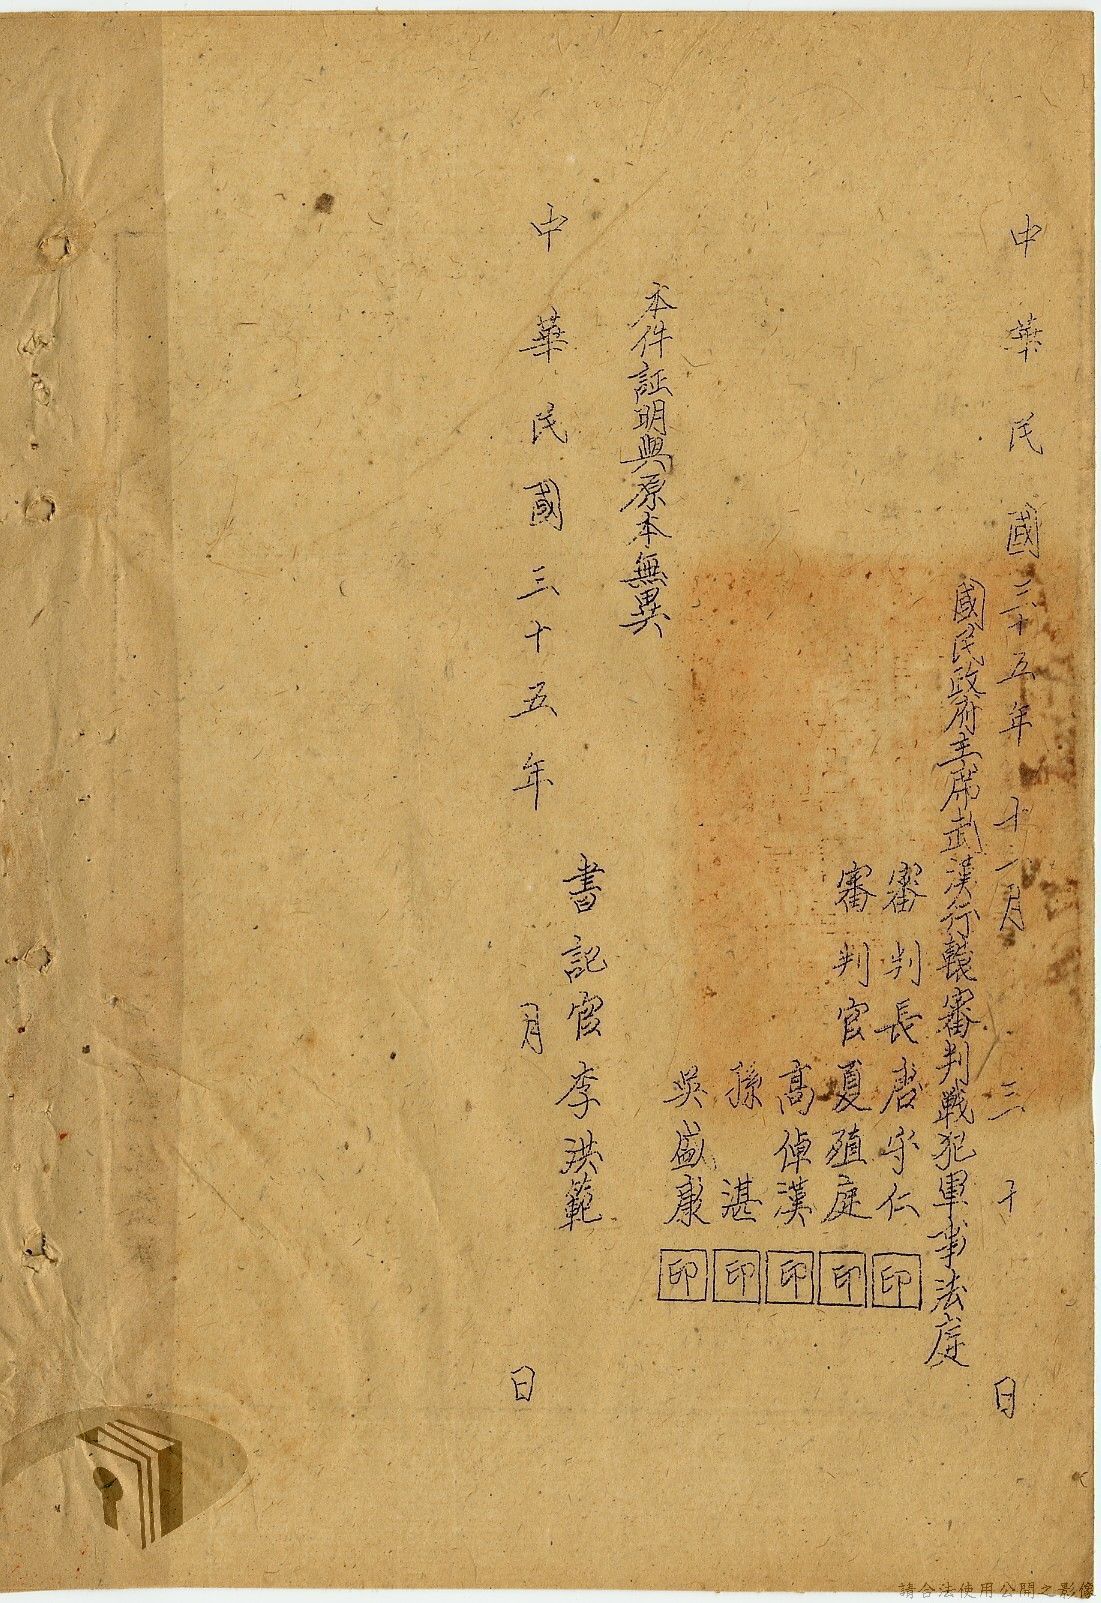 中華民國三十五年十二月三十日
國民政府主席武漢行轅審判戰犯軍事法庭
審判長唐守仁印
審判官夏殖庭印
高倬漢印
孫湛印
吳盛康印
本件証明與原本無異
書記官李洪範
中華民國三十五年月日
請合法使用公開之影像